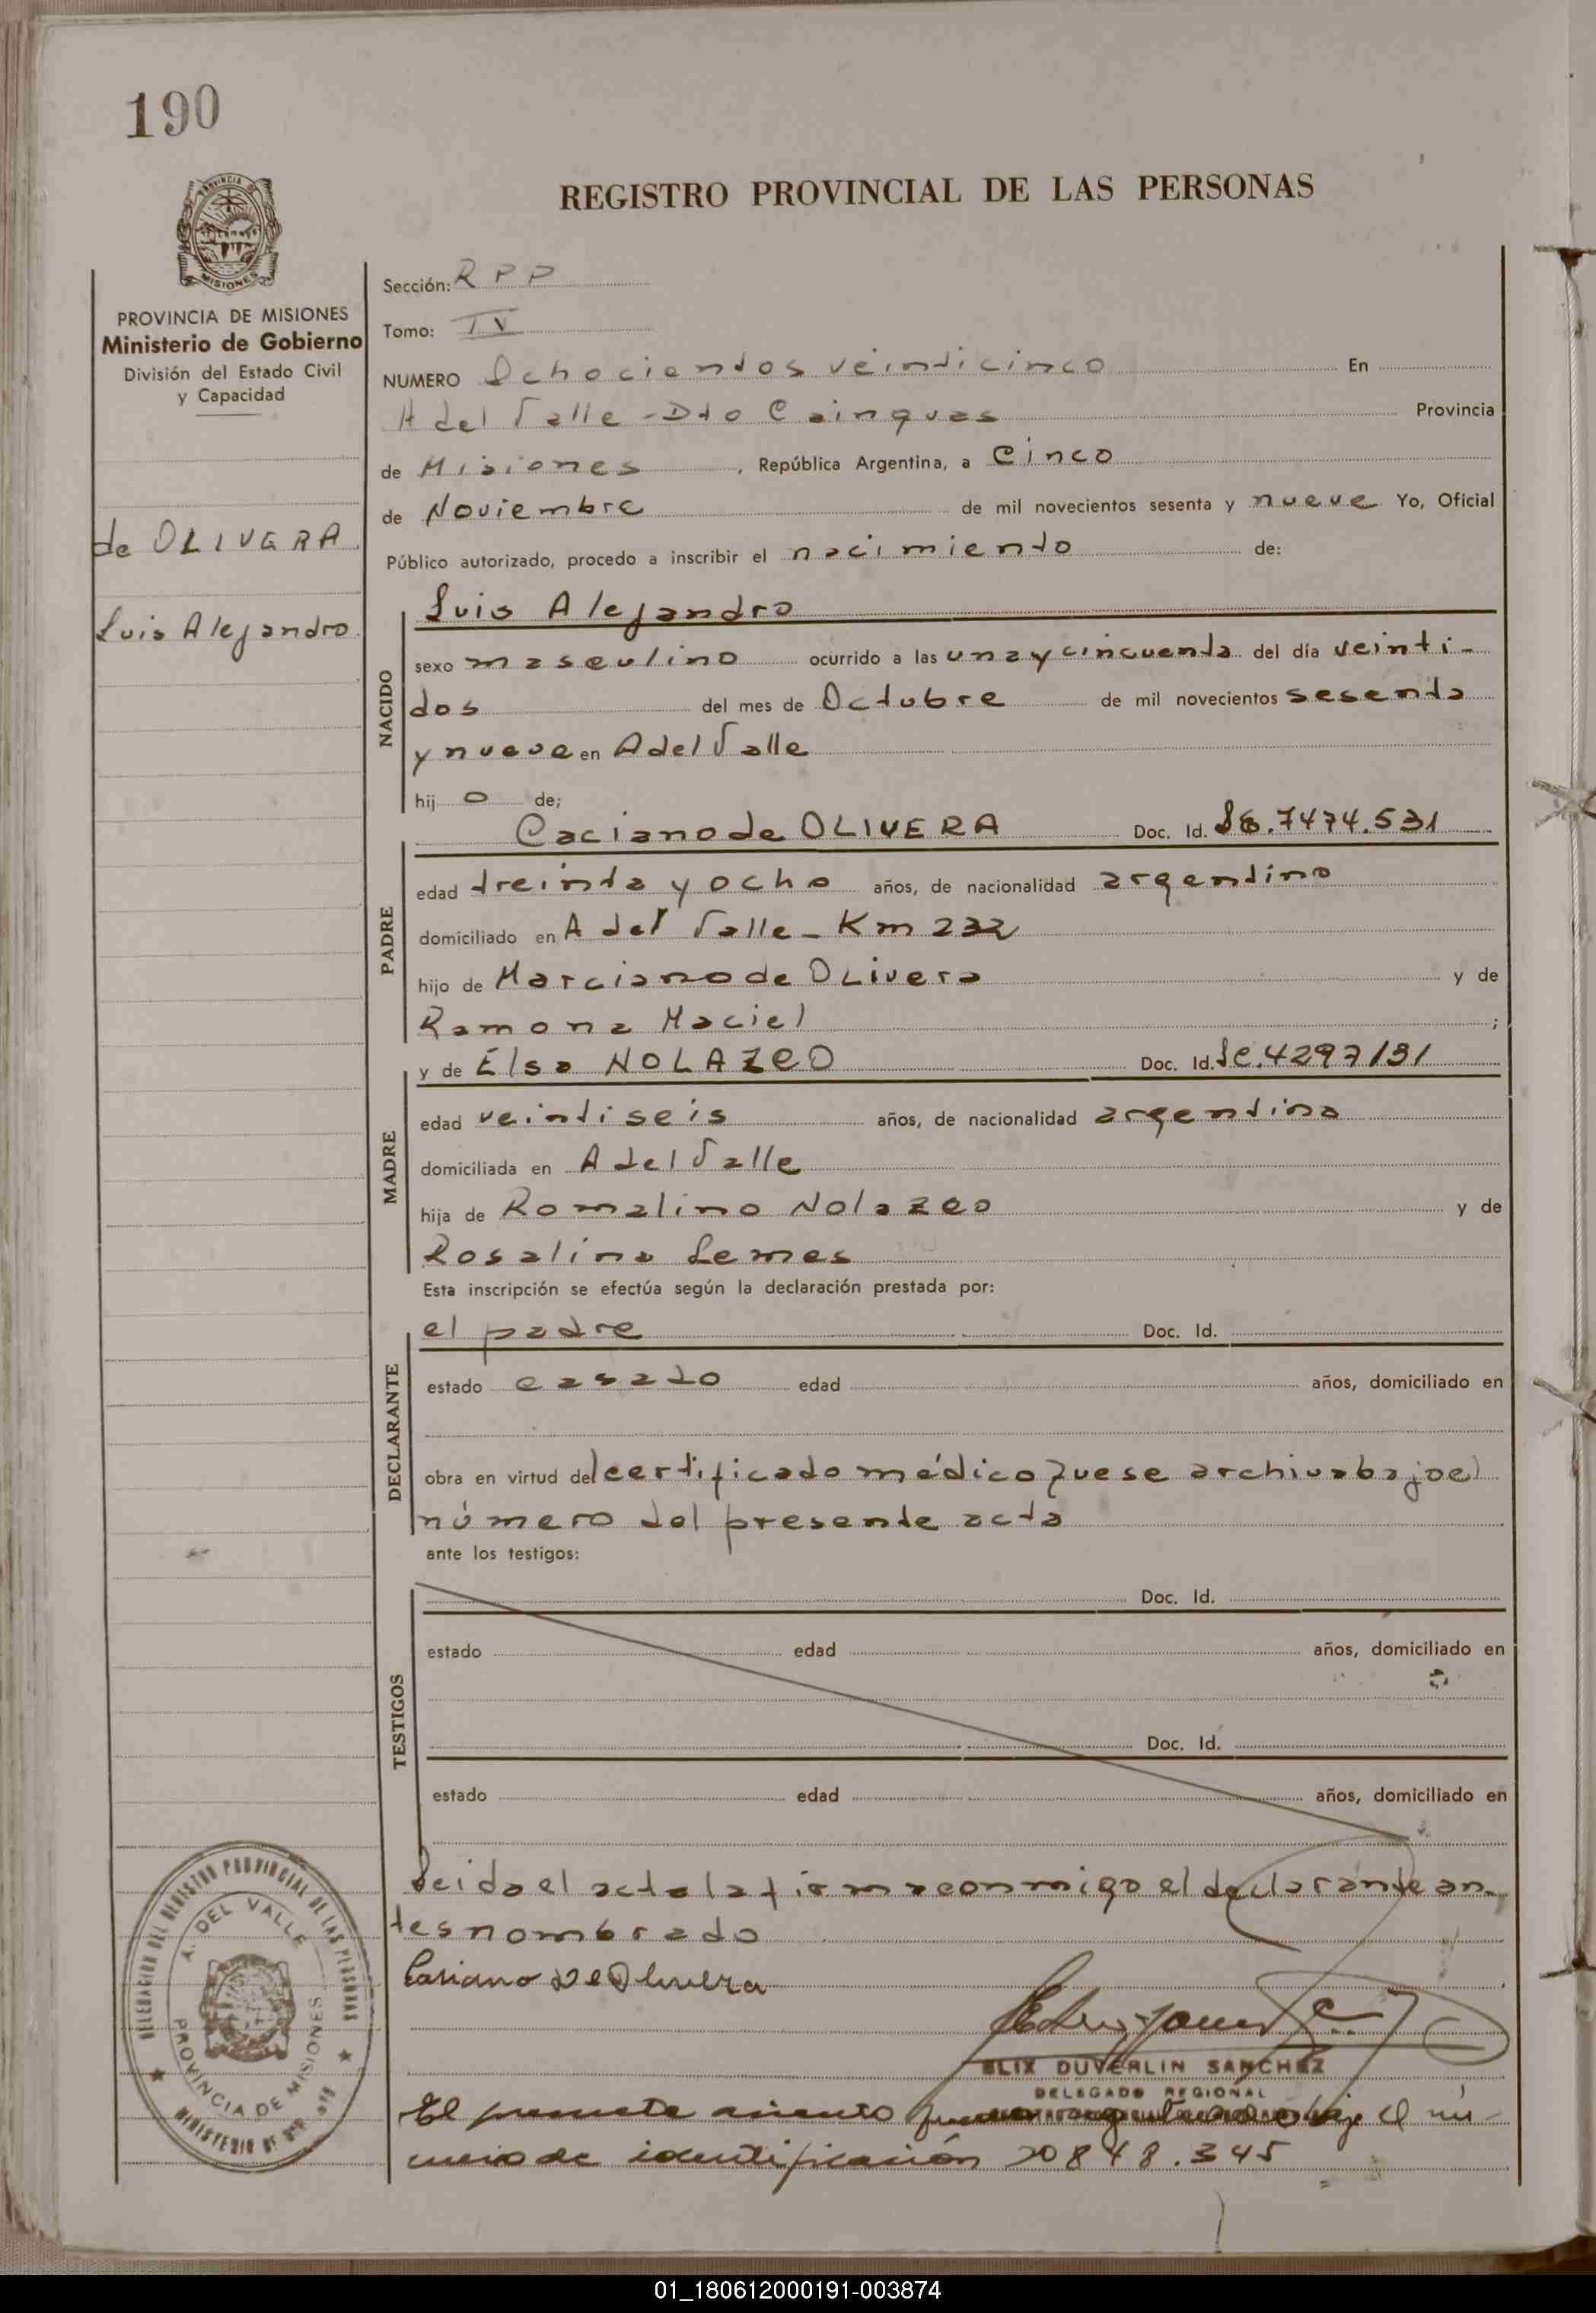 190
REGISTRO PROVINCIAL DE LAS PERSONAS
PROVINCIA DE MISIONES
MISIONES
PROVINCIA DE MISIONES
Ministerio de Gobierno
División del Estado Civil
y Capacidad
de OLIVERA
Luis Alejandro
Sección: R P P
Tomo: IV
NUMERO Ochocientos veinticinco En
A del Valle - Dto Cainguas Provincia
de Misiones, República Argentina, a Cinco
de Noviembre de mil novecientos sesenta y nueve Yo, Oficial
Público autorizado, procedo a inscribir el nacimiento de:
NACIDO
Luis Alejandro
sexo masculino ocurrido a las una y cincuenta del día veinti-
dos del mes de Octubre de mil novecientos sesenta
y nueve en A del Valle
hij o de;
PADRE
Caciano de OLIVERA Doc. Id. 7.474.531
edad treinta y ocho años, de nacionalidad argentino
domiciliado en A del Valle - Km 232
hijo de Marciano de Olivera y de
Ramona Maciel ;
MADRE
y de Elsa NOLAZCO Doc. Id. LC. 4297131
edad veintiseis años, de nacionalidad argentina
domiciliada en A del Valle
hija de Romalino Nolazco y de
Rosalina Lemes
Esta inscripción se efectúa según la declaración prestada por:
DECLARANTE
el padre Doc. Id.
estado casado edad años, domiciliado en
obra en virtud del certificado médico que se archiva bajo el
número del presente acta
ante los testigos:
TESTIGOS
Doc. Id.
estado edad años, domiciliado en
Doc. Id.
estado edad años, domiciliado en
Leida el acta la firma conmigo el declarante an-
tes nombrado
Casiano De Olivera
ELIX DUVERLIN SANCHEZ
DELEGADO REGIONAL
El presente asiento bajo el nú-
mero de identificación 20848.345
DELEGACION DEL REGISTRO PROVINCIAL DE LAS PERSONAS
A. DEL VALLE
PROVINCIA DE MISIONES
MINISTERIO DE
01_180612000191-003874